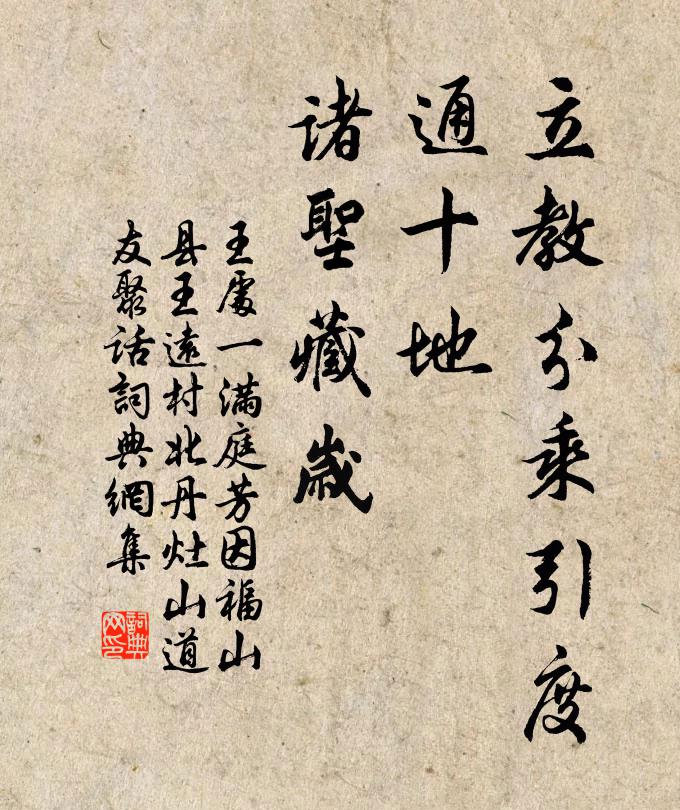 立教分乘引度
通十地
諸聖藏歳
王處一满庭芳因福山
县王遠村北丹灶山道
友聚话詞典網集
詞典
网印